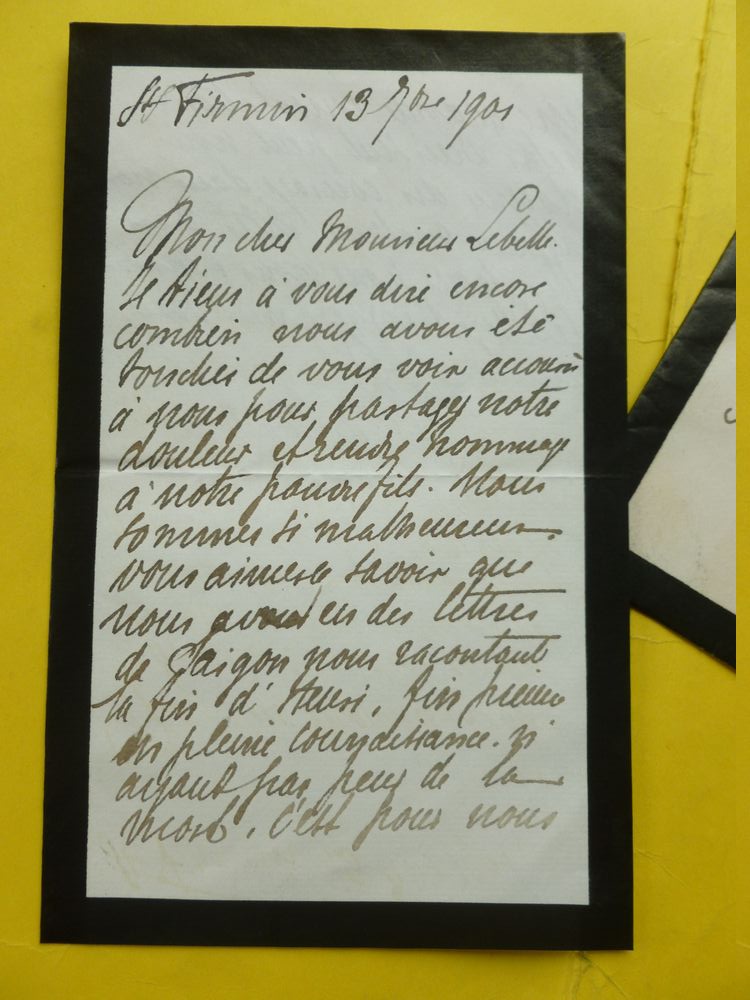 St Firmin 13 7bre 1901
Mon cher Monsieur Lebelle.
Je tiens à vous dire encore
combien nous avons été
touchés de vous voir accouru
à nous pour partager notre
douleur et rendre hommage
à notre pauvre fils. Nous
sommes si malheureux.
vous aimerez savoir que
nous avons eu des lettres
de Saigon nous racontant
la fin d'Henri, fin
en pleine connaissance. n'
ayant pas peur de la
mort. C'est pour nous